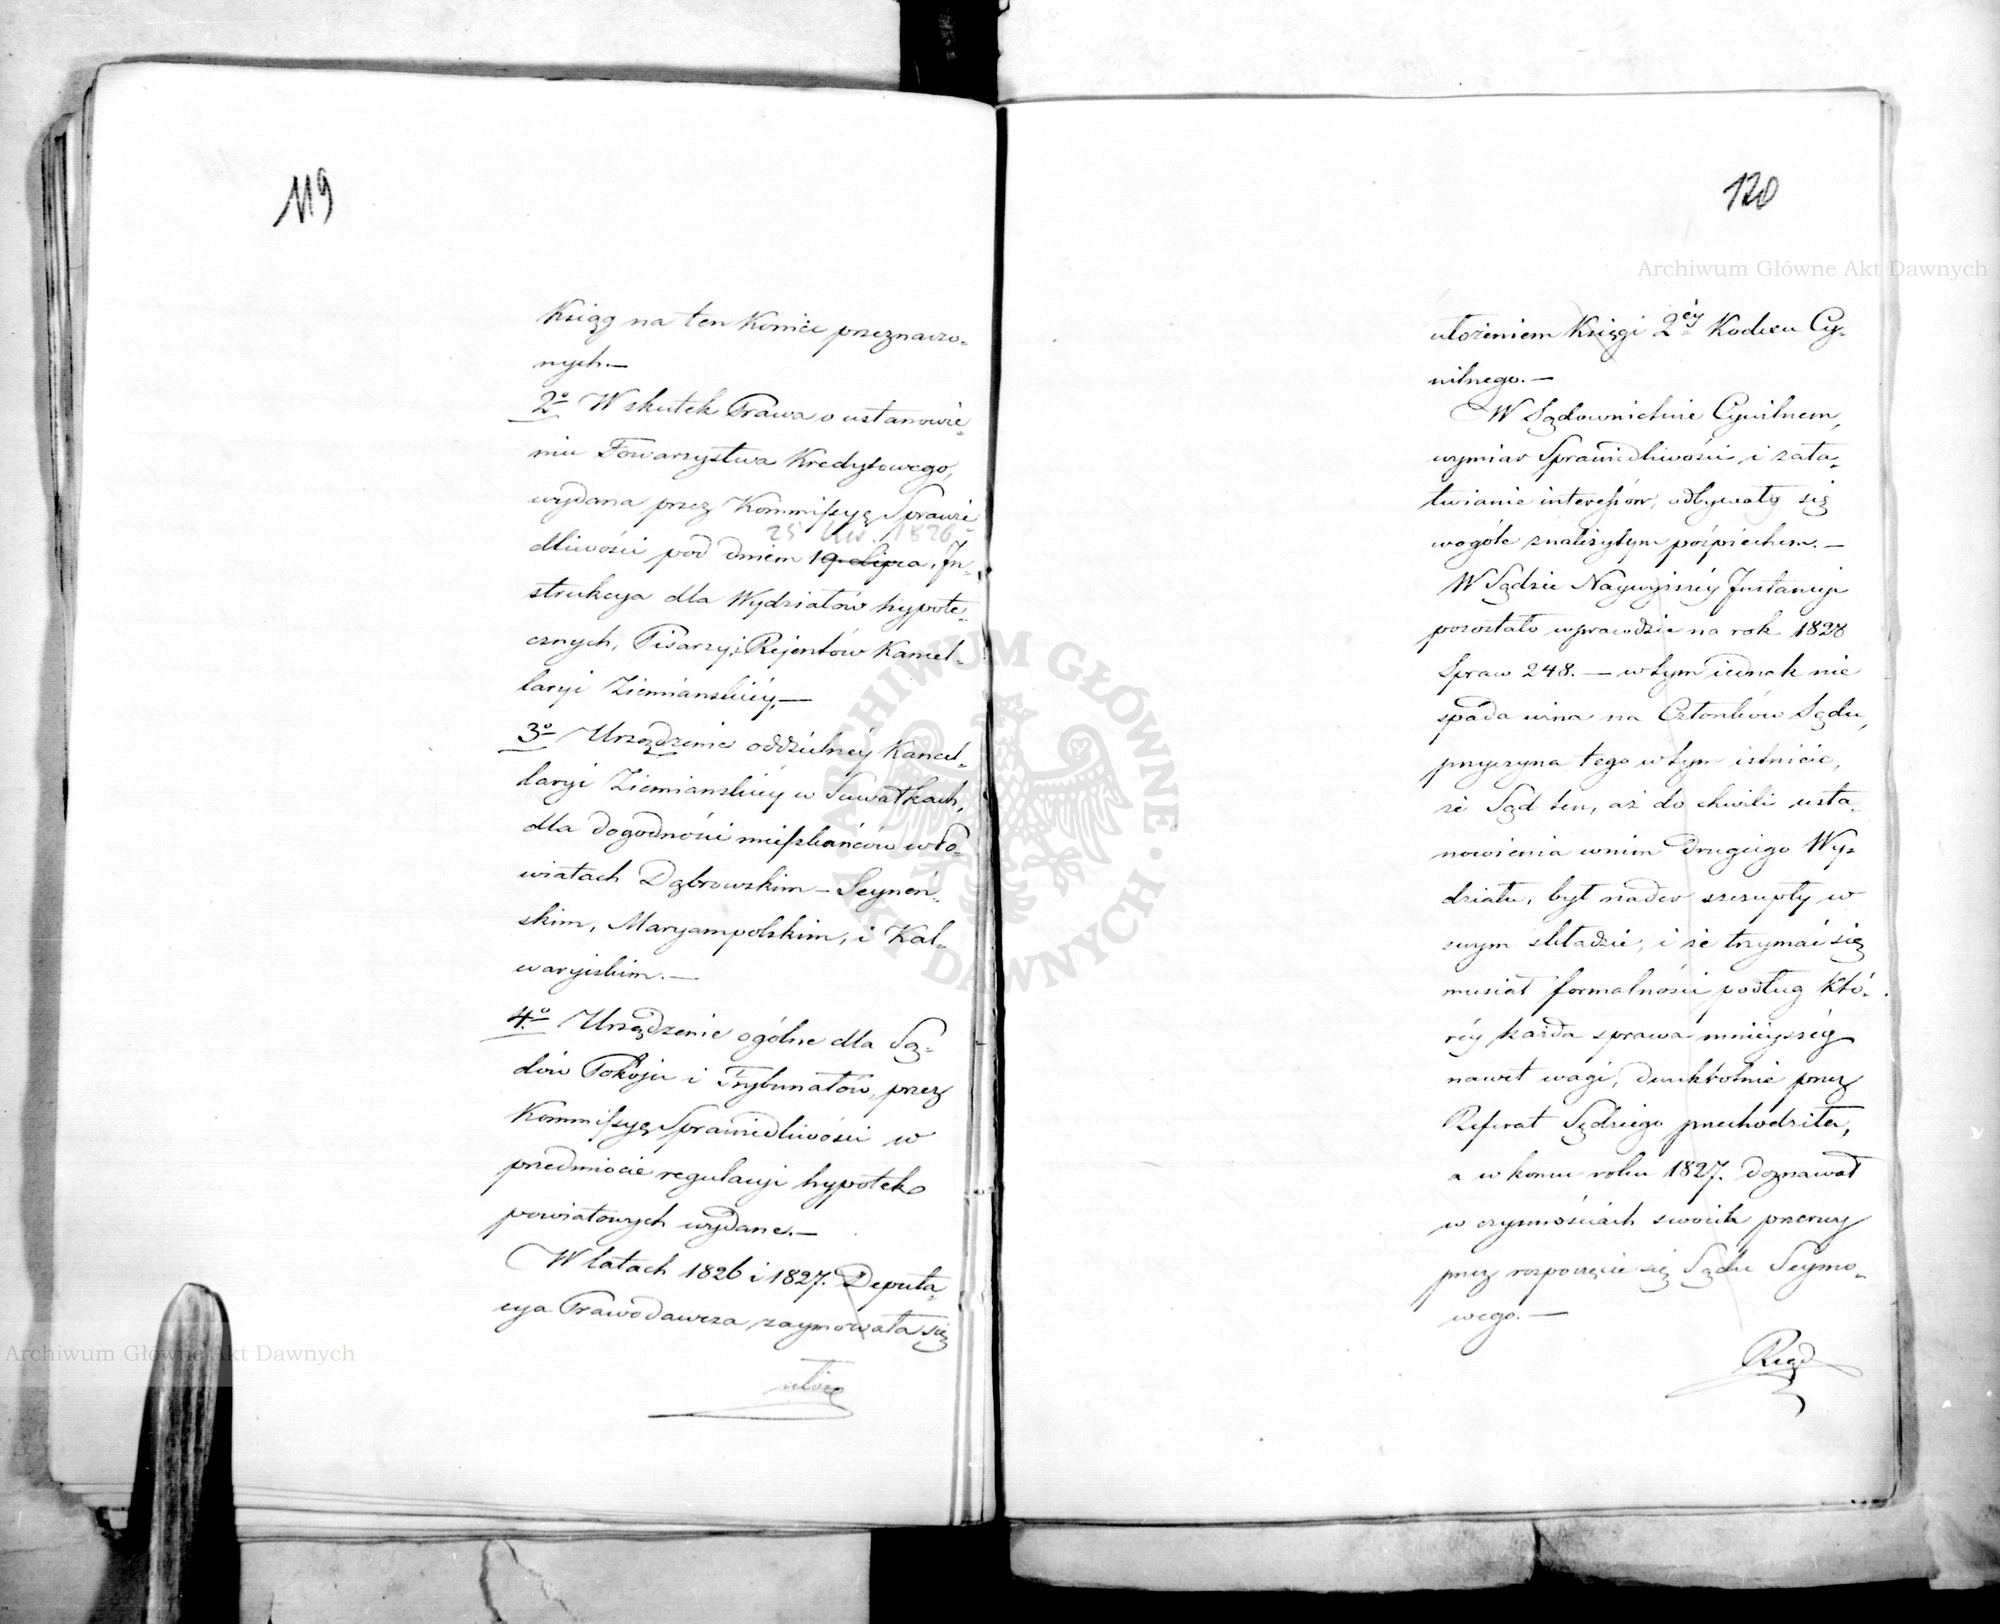 119
Ksiąg na ten koniec przeznaczo-
nych.—
2o Wskutek Prawa o ustanowie-
niu Towarzystwa Kredytowego,
wydana przez Kommissyą Sprawie-
25 Kw. 1826
dliwości pod dniem 19. Lipca, In-
strukcya dla Wydziałów hypote-
cznych, Pisarzy, i Rejentów Kancel-
laryi Ziemiańskiéy.—
3o Urządzenie oddzielnéy Kancel-
laryi Ziemiańskiéy w Suwałkach,
dla dogodności mieszkańców w Po-
wiatach Dąbrowskim – Seyneń-
skim, Maryampolskim, i Kal-
waryiskim.—
4o Urządzenie ogólne dla Są-
dów Pokoju i Trybunałów, przez
Kommissyą Sprawiedliwości w
przedmiocie regulacyi hypotek
powiatowych wydane.—
W latach 1826 i 1827. Deputa-
cya Prawodawcza zaymowała się
ułoże
120
ułożeniem Księgi 2éy Kodexu Cy-
wilnego.—
W Sądownictwie Cywilnem,
wymiar Sprawiedliwości i zała-
twianie interessów, odbywały się
wogóle z należytym pośpiechem.—
W Sądzie Naywyższéy Instancyi
pozostało wprawdzie na rok 1828
Spraw 248.— w tym iednak nie
spada wina na Członków Sądu,
przyczyna tego w tym istnieie,
że Sąd ten, aż do chwili usta-
nowienia w nim drugiego Wy-
działu, był nader szczupły w
swym składzie, i że trzymać się
musiał formalności podług któ-
réy każda sprawa mnieyszéy
nawet wagi, dwukrotnie przez
Referat Sędziego przechodziła,
a w końcu roku 1827. doznawał
w czynnościach swoich przerwy
przez rozpoczęcie się Sądu Seymo-
wego.—
Rząd
Archiwum Główne Akt Dawnych
Archiwum Główne Akt Dawnych
ARCHIWUM GŁÓWNE AKT DAWNYCH